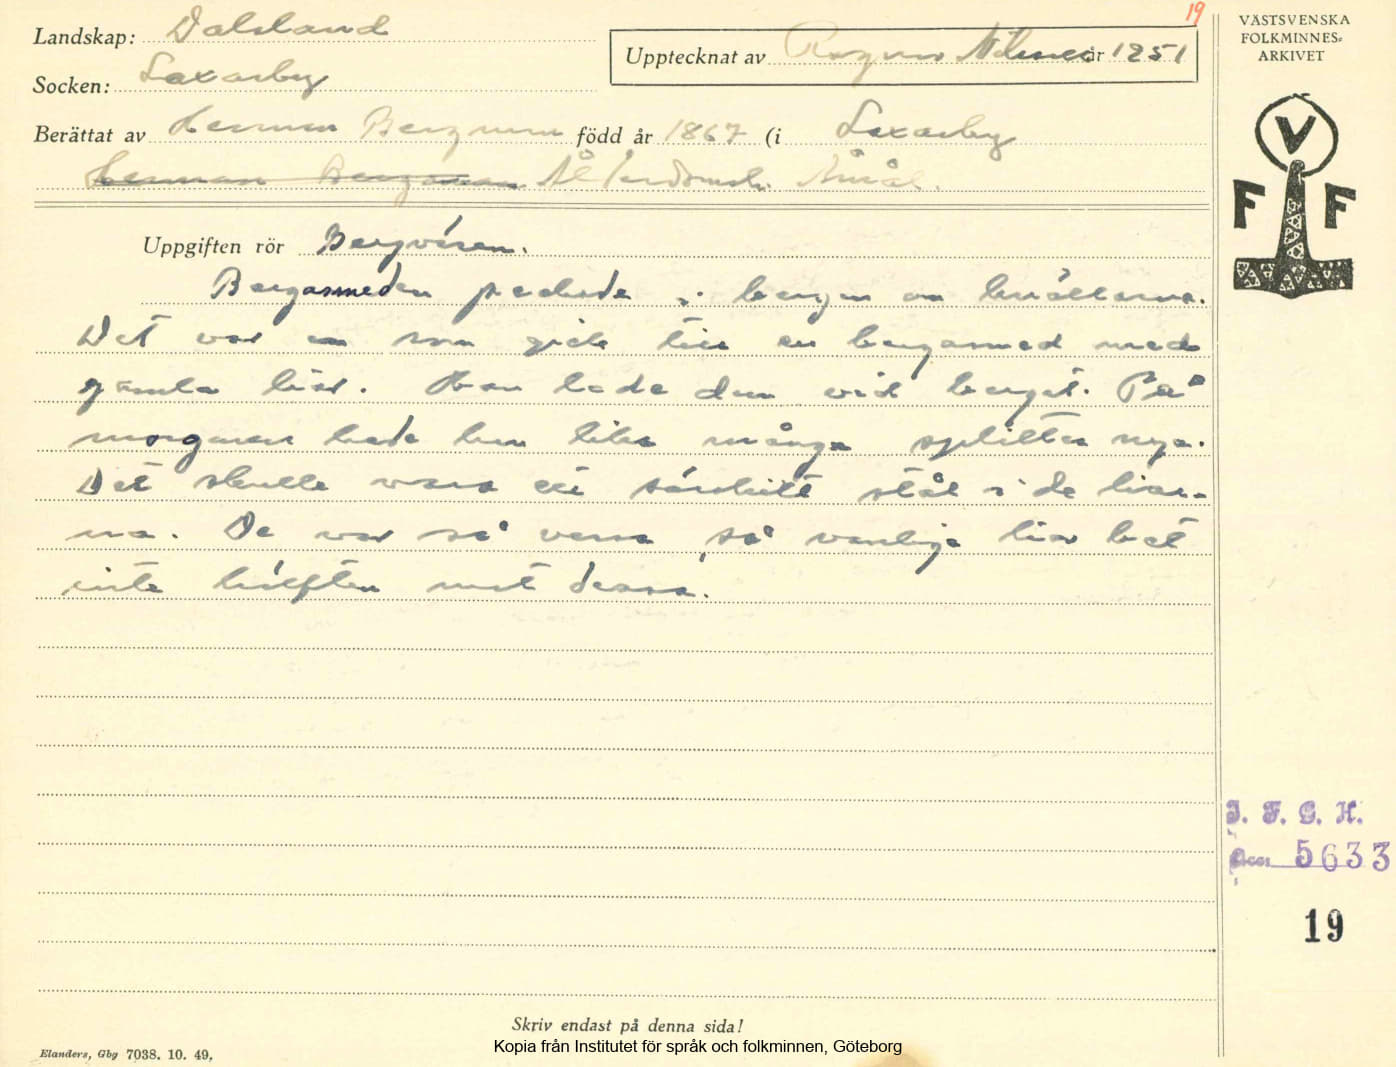 19
Landskap: Dalsland
Upptecknat av Ragnar Nilsson år 1951
Socken: Laxarby
Berättat av Herman Bergman född år 1867 (i Laxarby
Herman Bergman Ålderdomsh. Åmål.
Uppgiften rör Bergväsen.
Bergasmeden pickade i bergen om kvällarna.
Det var en som gick till en bergasmed med
gamla liar. Han lade dem vid berget. På
morgonen hade han lika många splitter nya.
Det skulle vara ett särskilt stål i de liar-
na. De var så vassa så vanliga liar bet
inte hälften mot dessa.
Skriv endast på denna sida!
Kopia från Institutet för språk och folkminnen, Göteborg
Elanders, Gbg 7038. 10. 49.
VÄSTSVENSKA
FOLKMINNES-
ARKIVET
V
F F
I. F. G. H.
Acc. 5633
19